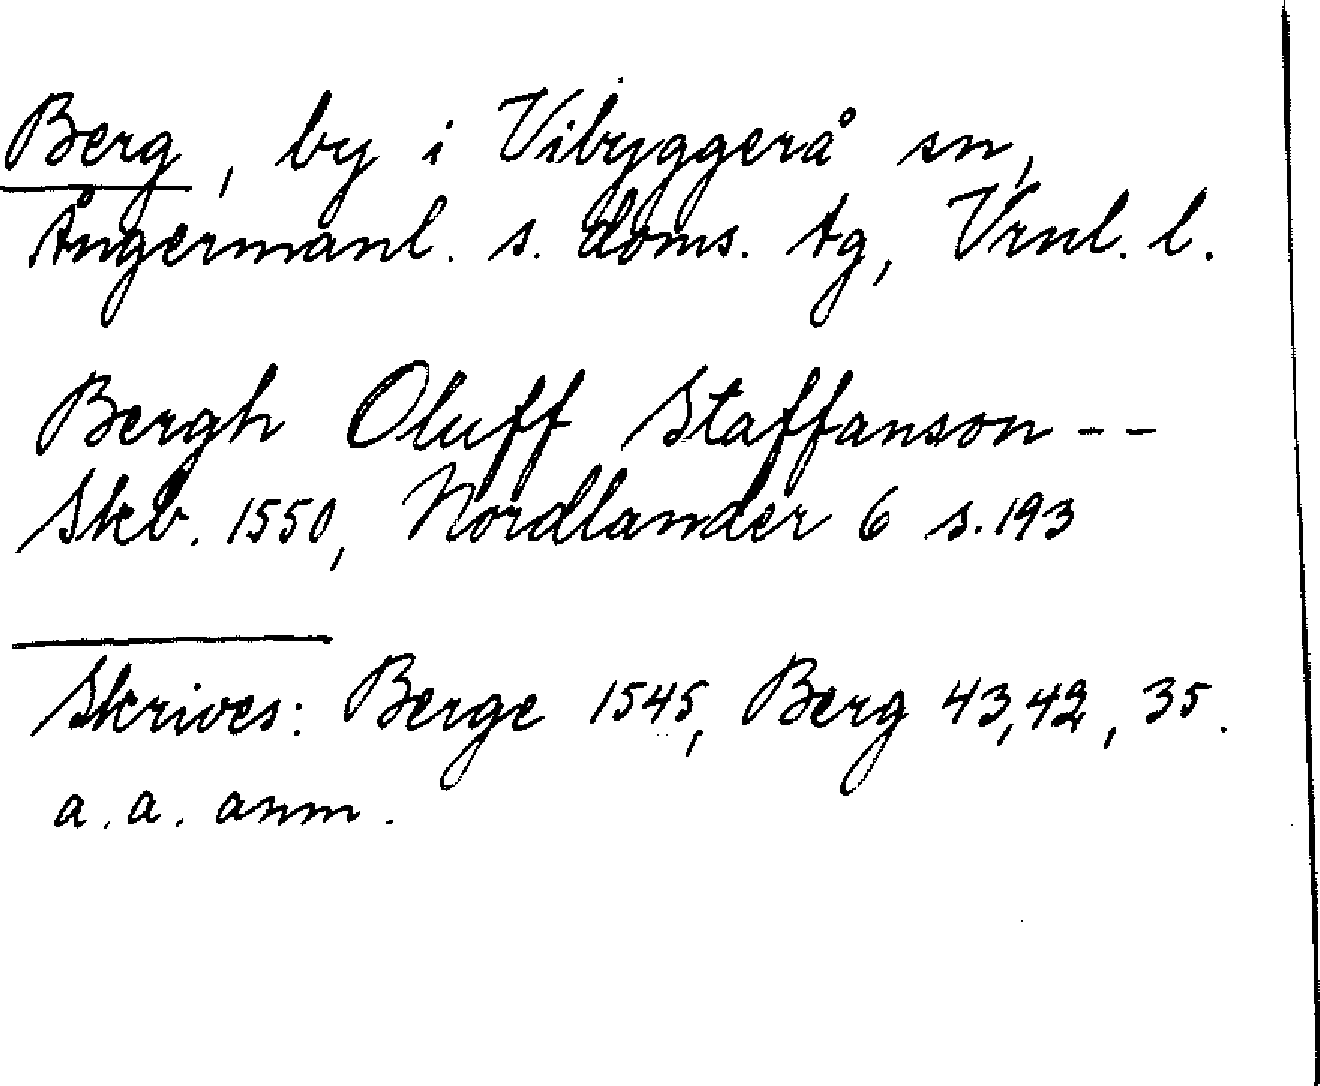 Berg, by i Vibyggerå sn,
Ångermanl. s. doms. tg, Vrnl. l.
Bergh Oluff Staffanson --
Skb. 1550, Nordlander 6 s. 193
Skrives: Berge 1545, Berg 43, 42, 35.
a. a. anm.